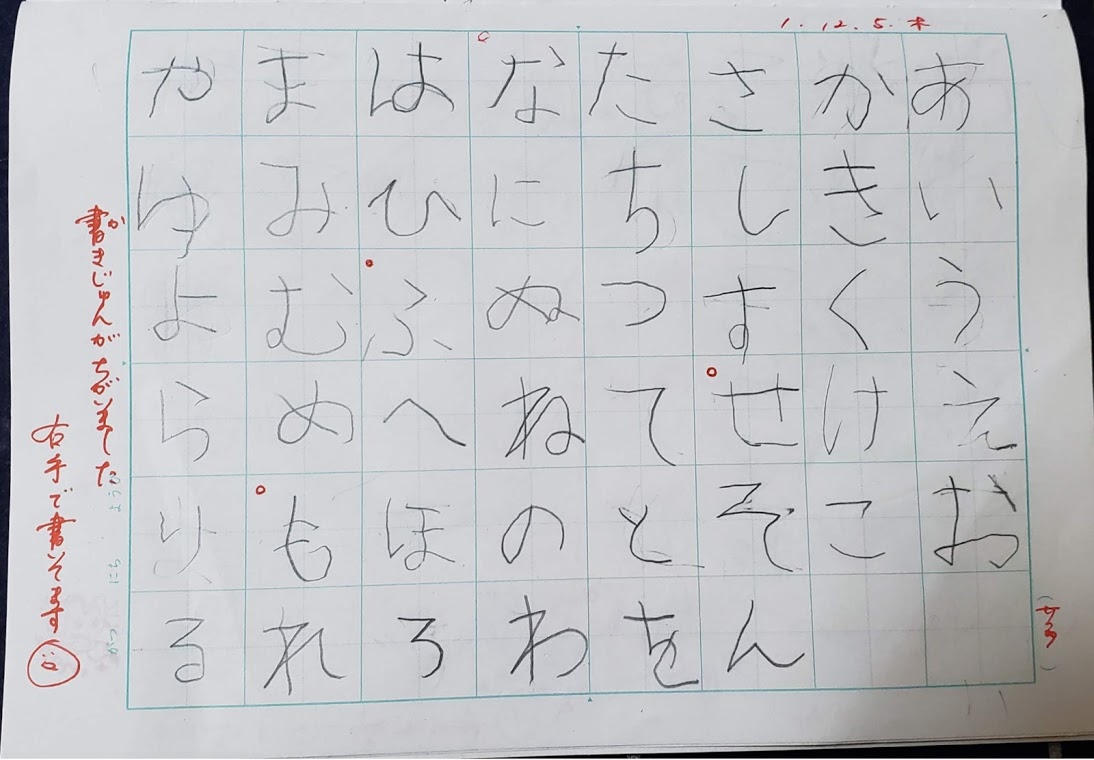 1.12.5.木
あいうえお
かきくけこ
さしすせそ
たちつてと
なにぬねの
はひふへほ
まみむめも
やゆよらり
るれろわをん
か
書きじゅんがちがいました
右手で書いてます
がつ にち よう